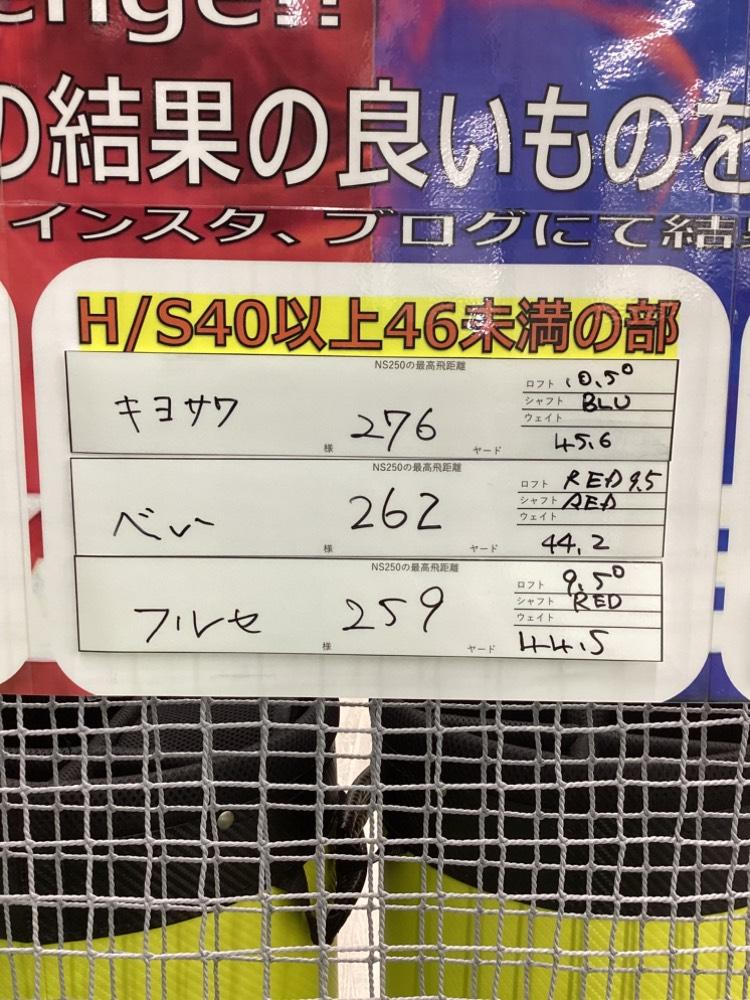 enge!!
の結果の良いものを
インスタ、ブログにて結果
H/S40以上46未満の部
NS250の最高飛距離
キヨサワ 様 276 ヤード
ロフト 10.5°
シャフト BLU
ウェイト
45.6
NS250の最高飛距離
べい 様 262 ヤード
ロフト RED 9.5
シャフト RED
ウェイト
44.2
NS250の最高飛距離
フルセ 様 259 ヤード
ロフト 9.5°
シャフト RED
ウェイト
44.5